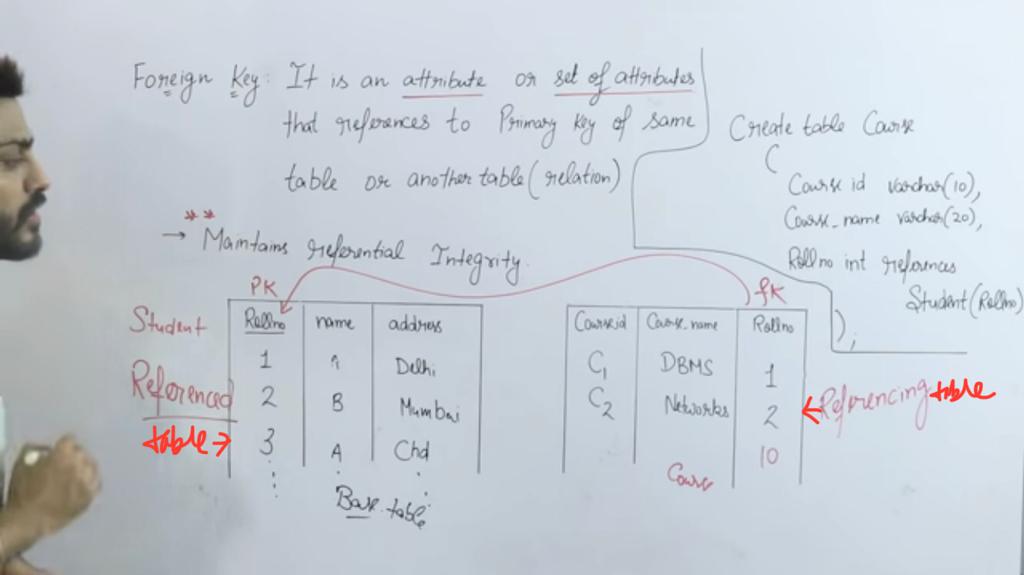 Foreign Key: It is an attribute or set of attributes
that references to Primary Key of same
table or another table (relation)
** 
→ Maintains referential Integrity.
Create table Course
(
Course id varchar(10),
Course_name varchar(20),
Rollno int references
Student(Rollno)
);
PK
Student
Referenced
table →
Rollno name address
1 A Delhi
2 B Mumbai
3 A Chd
Base table
fK
Courseid Course_name Rollno
C1 DBMS 1
C2 Networks 2
10
Course
← Referencing table